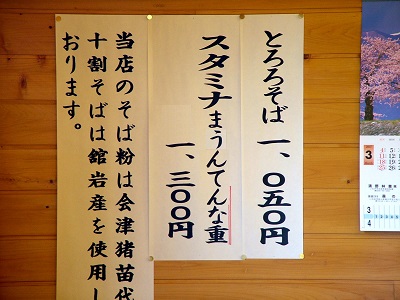 とろろそば 一、〇五〇円
スタミナまうんてんな重
一、三〇〇円
当店のそば粉は会津猪苗代
十割そばは舘岩産を使用し
おります。
3
3
4